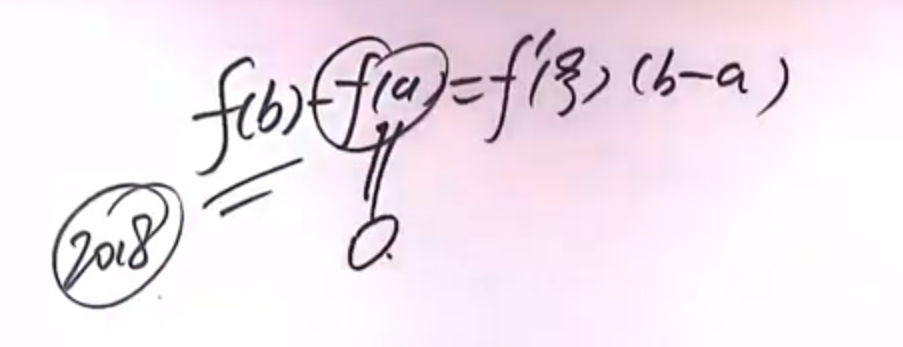 f(b)-f(a)=f'(ξ)(b-a)
||
0
2018